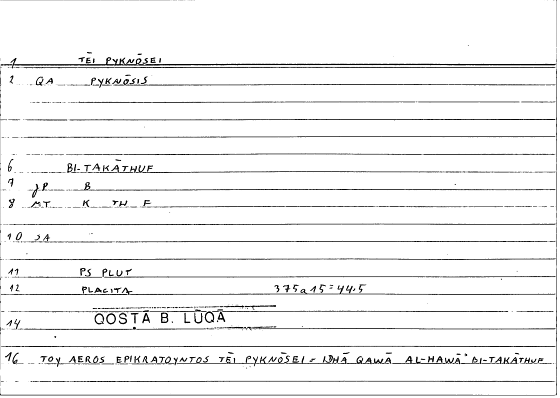 1 TĒI PYKNŌSEI
2 QA PYKNŌSIS
6 BI-TAKĀTHUF
7 JP B
8 MT K TH F
10 JA
11 PS PLUT
12 PLACITA 375a15=44.5
14 QOSṬĀ B. LŪQĀ
16 TOY AEROS EPIKRATOYNTOS TĒI PYKNŌSEI = IDHĀ QAWĀ AL-HAWĀʾ BI-TAKĀTHUF